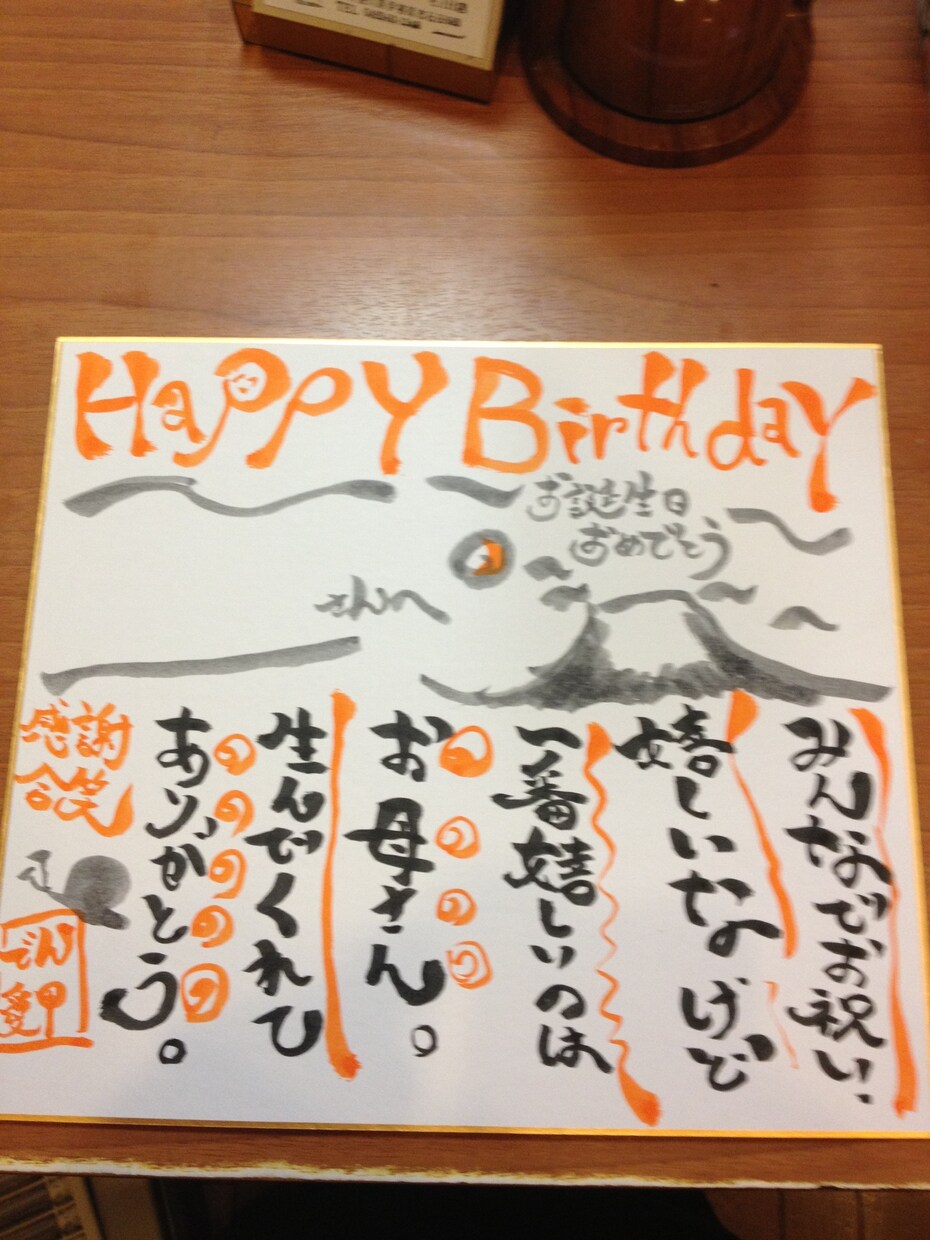 HAPPY Birthday
お誕生日
おめでとう
さんへ
みんなでお祝い、
嬉しいなけど
一番嬉しいのは
お母さん。
生んでくれて
ありがとう。
感謝
合笑
でん